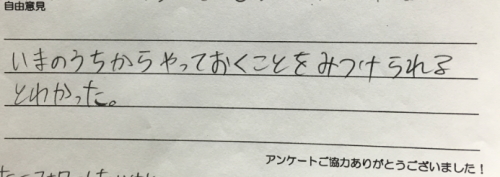 自由意見
いまのうちからやっておくことをみつけられる
とわかった。
アンケートご協力ありがとうございました！